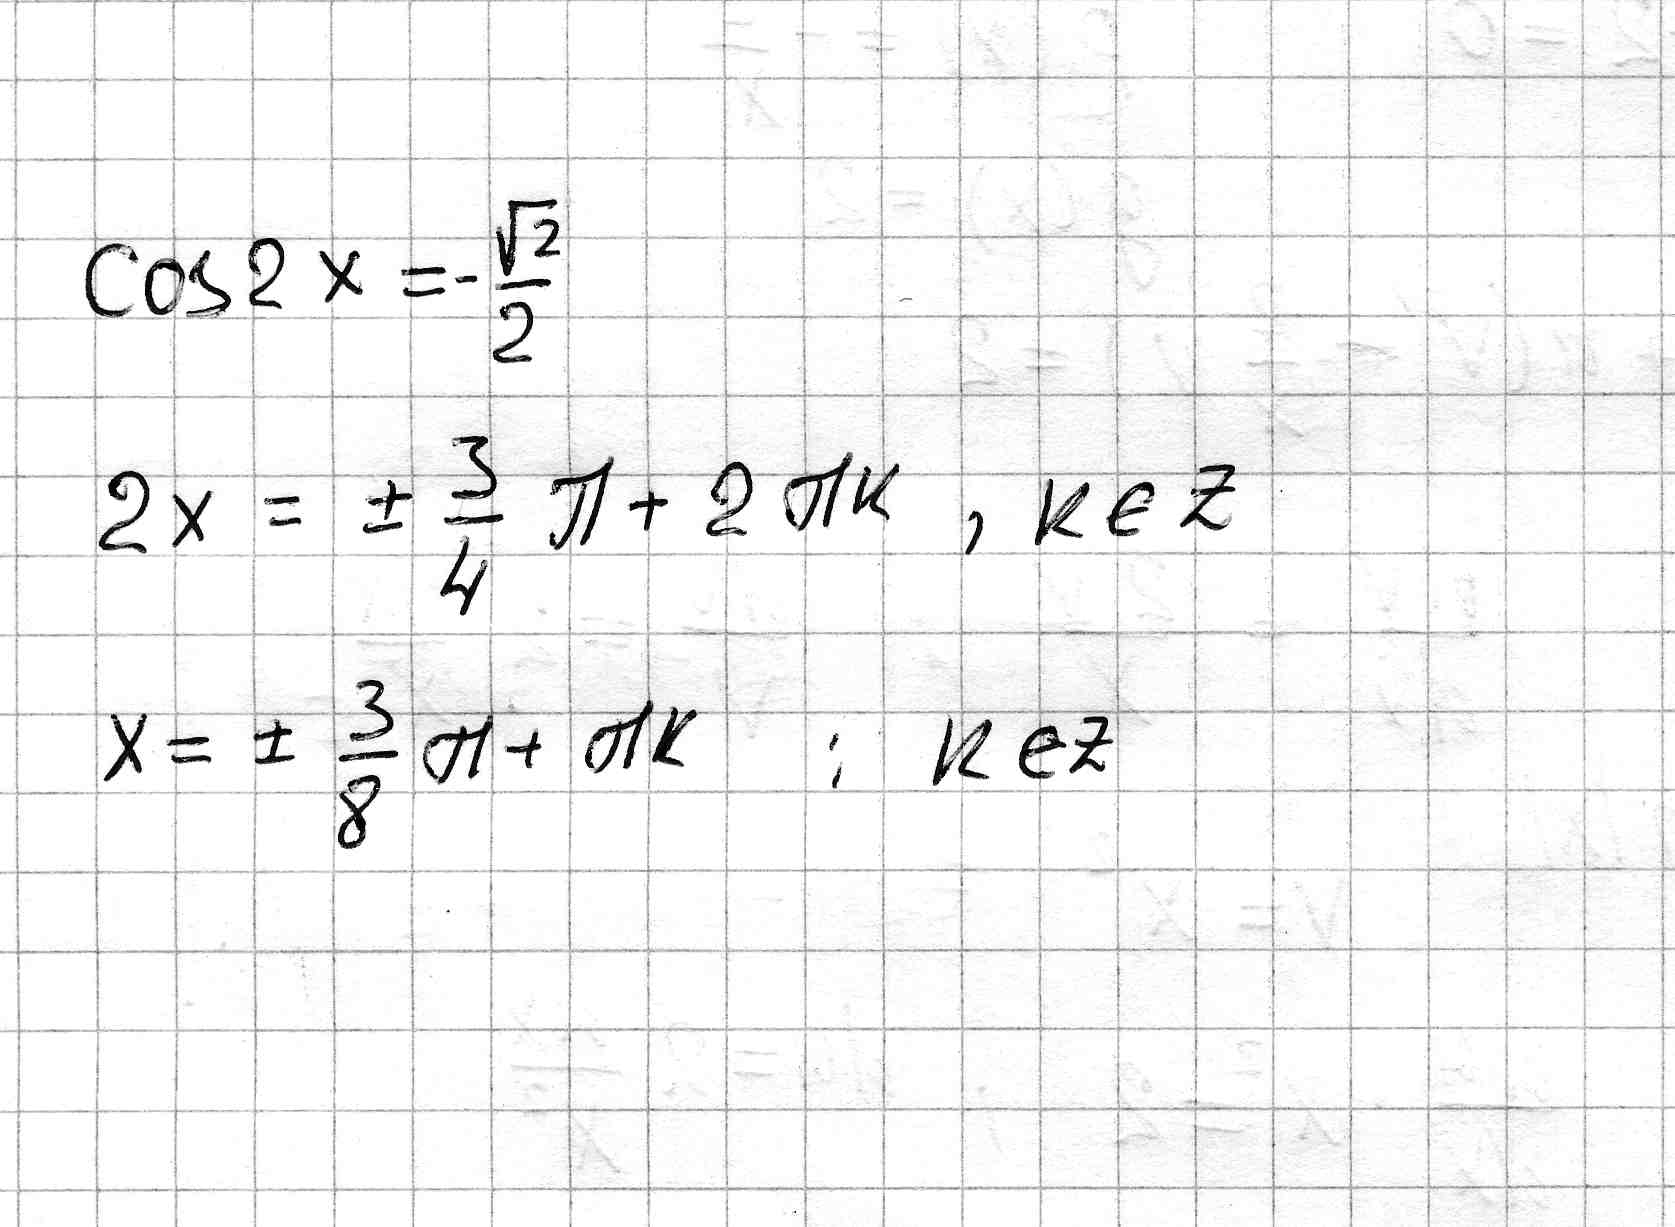 cos2x = -√2/2
2x = ± 3/4 π + 2πк , к ∈ Z
x = ± 3/8 π + πк ; к ∈ Z